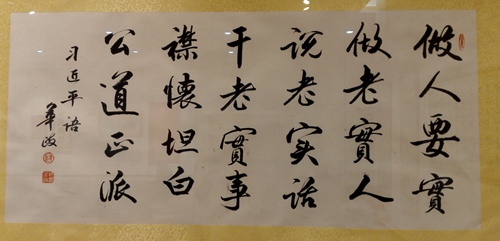 做人要實
做老實人
说老实话
干老實事
襟懷坦白
公道正派
习近平语
華政